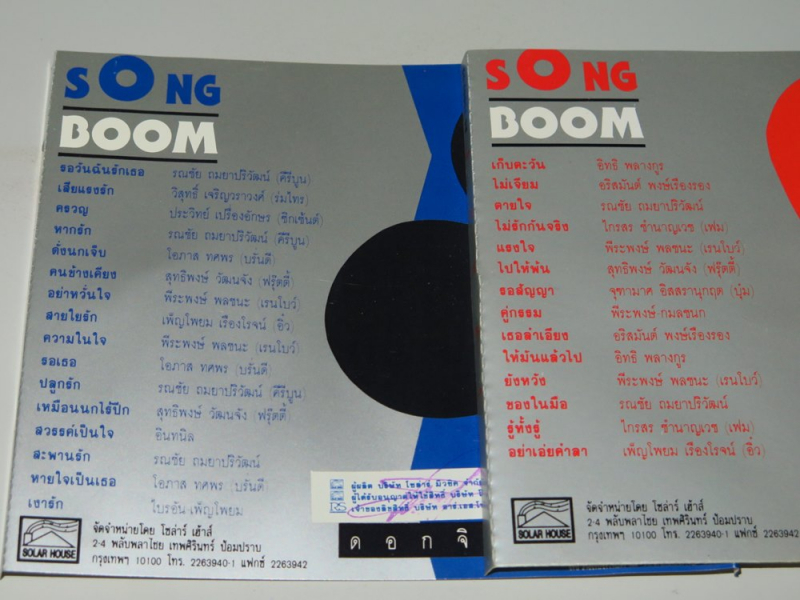 SONG
BOOM
รอวันฉันรักเธอ รณชัย ถมยาปริวัฒน์ (คีรีบูน)
เสียแรงรัก วิสุทธิ์ เจริญวราวงศ์ (ร่มไทร)
ครวญ ประวิทย์ เปรื่องอักษร (ซิกเซ้นต์)
หากรัก รณชัย ถมยาปริวัฒน์ (คีรีบูน)
ดั่งนกเจ็บ โอภาส ทศพร (บรั่นดี)
คนข้างเคียง สุทธิพงษ์ วัฒนจัง (ฟรุ๊ตตี้)
อย่าหวั่นใจ พีระพงษ์ พลชนะ (เรนโบว์)
สายใยรัก เพ็ญโพยม เรืองโรจน์ (อิ๋ว)
ความในใจ พีระพงษ์ พลชนะ (เรนโบว์)
รอเธอ โอภาส ทศพร (บรั่นดี)
ปลูกรัก รณชัย ถมยาปริวัฒน์ (คีรีบูน)
เหมือนนกไร้ปีก สุทธิพงษ์ วัฒนจัง (ฟรุ๊ตตี้)
สวรรค์เป็นใจ อินทนิล
สะพานรัก รณชัย ถมยาปริวัฒน์
หายใจเป็นเธอ โอภาส ทศพร (บรั่นดี)
เงารัก ไบรอัน-เพ็ญโพยม
SOLAR HOUSE
จัดจำหน่ายโดย โซล่าร์ เฮ้าส์
2-4 พลับพลาไชย เทพศิรินทร์ ป้อมปราบ
กรุงเทพฯ 10100 โทร. 2263940-1 แฟกซ์ 2263942
ผู้ผลิต บริษัท โซล่าร์ มิวสิค
ผู้ได้รับอนุญาตให้ใช้สิทธิ์ บริษัท
เจ้าของลิขสิทธิ์ บริษัท
ดอกจิ
SONG
BOOM
เก็บตะวัน อิทธิ พลางกูร
ไม่เจียม อริสมันต์ พงษ์เรืองรอง
ตายใจ รณชัย ถมยาปริวัฒน์
ไม่รักกันจริง ไกรสร ชำนาญเวช (เฟม)
แรงใจ พีระพงษ์ พลชนะ (เรนโบว์)
ไปให้พ้น สุทธิพงษ์ วัฒนจัง (ฟรุ๊ตตี้)
รอสัญญา จุฑามาศ อิสสรานุกฤต (บุ๋ม)
คู่กรรม พีระพงษ์ กมลชนก
เธอลำเอียง อริสมันต์ พงษ์เรืองรอง
ให้มันแล้วไป อิทธิ พลางกูร
ยังหวัง พีระพงษ์ พลชนะ (เรนโบว์)
ของในมือ รณชัย ถมยาปริวัฒน์
รู้ทั้งรู้ ไกรสร ชำนาญเวช (เฟม)
อย่าเอ่ยคำลา เพ็ญโพยม เรืองโรจน์ (อิ๋ว)
SOLAR HOUSE
จัดจำหน่ายโดย โซล่าร์ เฮ้าส์
2-4 พลับพลาไชย เทพศิรินทร์ ป้อมปราบ
กรุงเทพฯ 10100 โทร. 2263940-1 แฟกซ์ 2263942